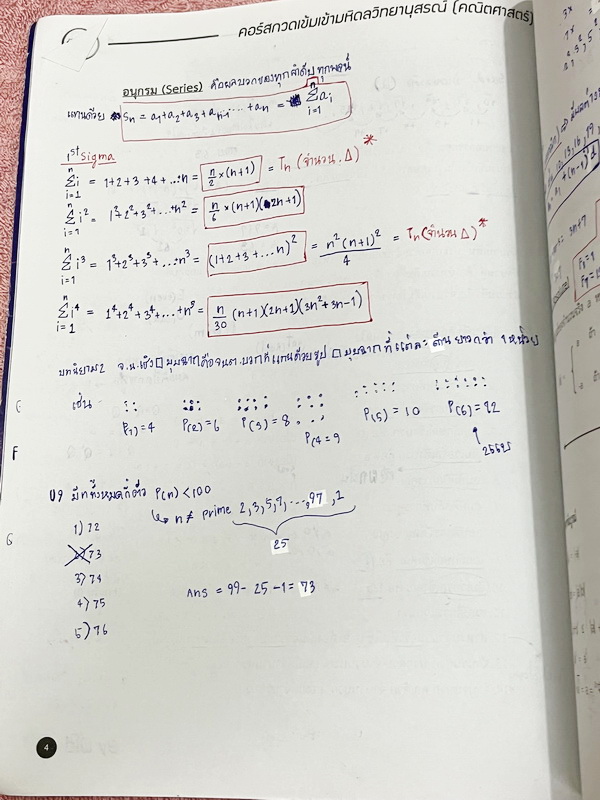 คอร์สกวดเข้มเข้ามหิดลวิทยานุสรณ์ (คณิตศาสตร์)
อนุกรม (Series) คือผลบวกของทุกลำดับทุกพจน์
แทนด้วย Sₙ = a₁+a₂+a₃+aₙ₋₁ ... +aₙ = Σⁿᵢ₌₁ aᵢ
1ˢᵗ Sigma
Σⁿᵢ₌₁ i = 1+2+3+4+...+n = n/2 × (n+1) = Tₙ (จำนวน Δ) *
Σⁿᵢ₌₁ i² = 1²+2²+3²+...+n² = n/6 × (n+1)(2n+1)
Σⁿᵢ₌₁ i³ = 1³+2³+3³+...+n³ = (1+2+3+...n)² = n²(n+1)²/4 = Tₙ (จำนวน Δ) *
Σⁿᵢ₌₁ i⁴ = 1⁴+2⁴+3⁴+...+n⁵ = n/30 (n+1)(2n+1)(3n²+3n-1)
บทนิยาม 2 จ.น.เชิง □ มุมฉากคือจน.ต.บวกที่แทนด้วยรูป □ มุมฉากที่แต่ละด้านยาวกว่า 1 หน่วย
เช่น
P(1)=4 P(2)=6 P(3)=8 P(4=9 P(5)=10 P(6)=12
มีทั้งหมดกี่ตัว P(n) < 100
↳ n ≠ prime 2,3,5,7,...,97,1
25
1) 72
2) 73
3) 74
4) 75
5) 76
Ans = 99-25-1= 73
4